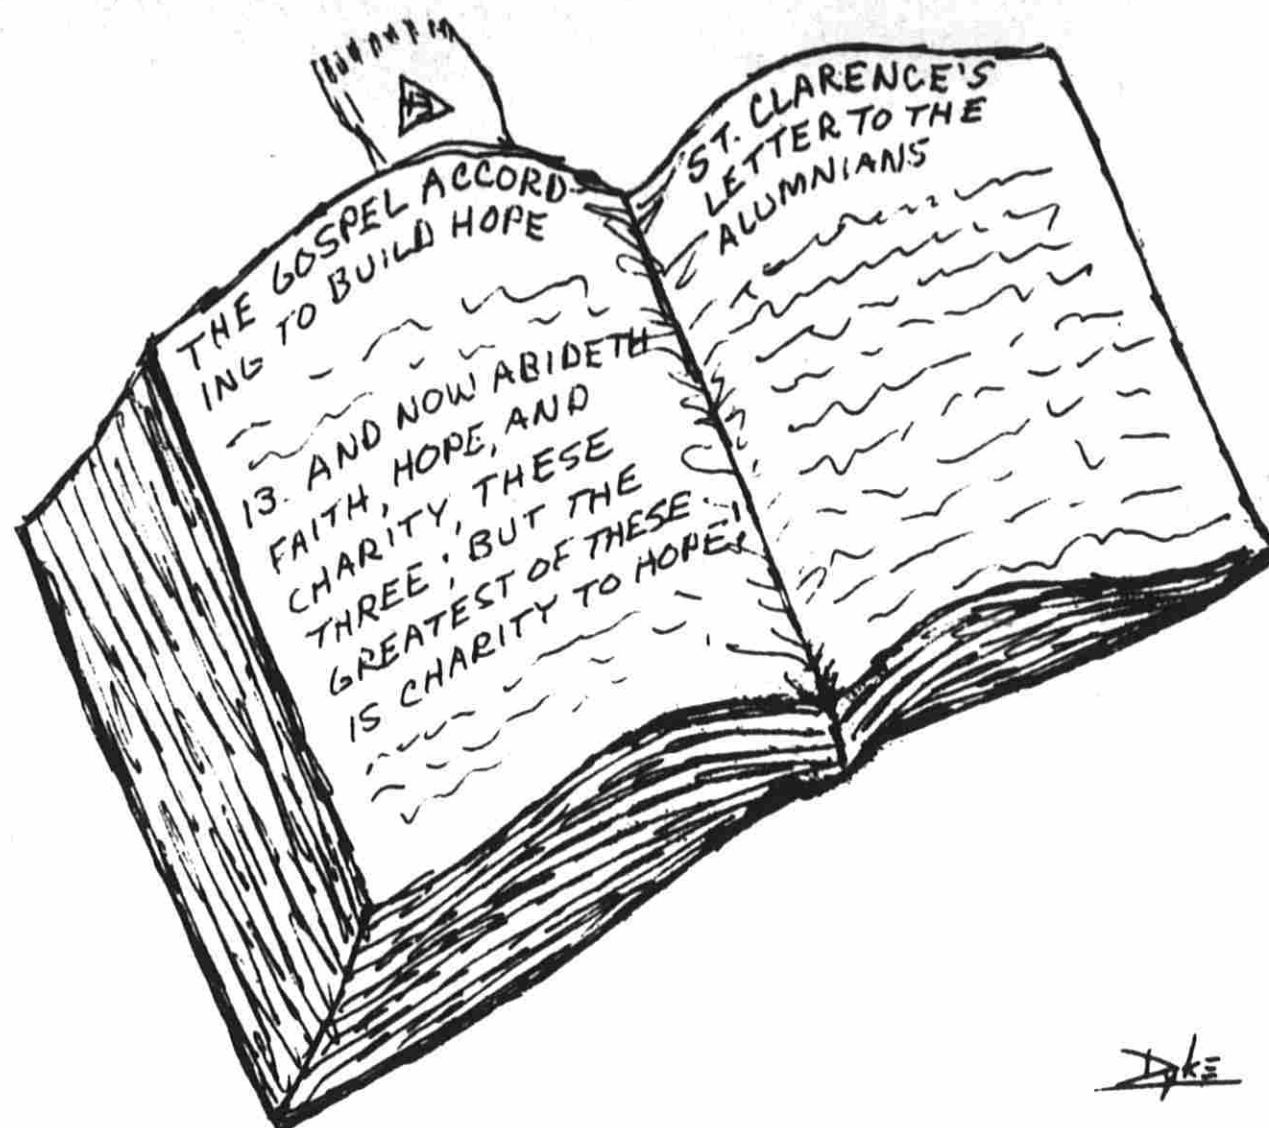 THE GOSPEL ACCORD-
ING TO BUILD HOPE
13. AND NOW ABIDETH
FAITH, HOPE, AND
CHARITY, THESE
THREE; BUT THE
GREATEST OF THESE
IS CHARITY TO HOPE!
ST. CLARENCE'S
LETTER TO THE
ALUMNIANS
Dyke